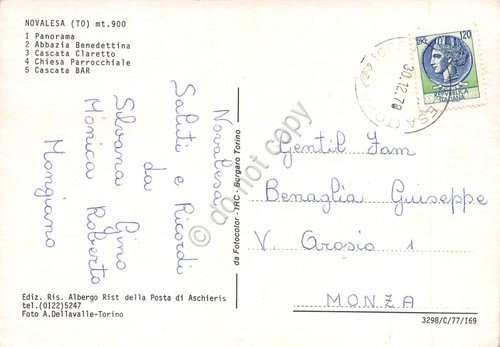 NOVALESA (TO) mt.900
1 Panorama
2 Abbazia Benedettina
3 Cascata Claretto
4 Chiesa Parrocchiale
5 Cascata BAR
Novalesa
Saluti e Ricordi
da
Silvana Gino
Monica Roberto
Mongiano
Ediz. Ris. Albergo Rist della Posta di Aschieris
tel.(0122)5247
Foto A.Dellavalle-Torino
da Fotocolor IRC - Borgaro Torino
LIRE 120
30.12.78
Gentil Fam
Benaglia Giuseppe
V. Arosio 1
MONZA
3298/C/77/169
do not copy